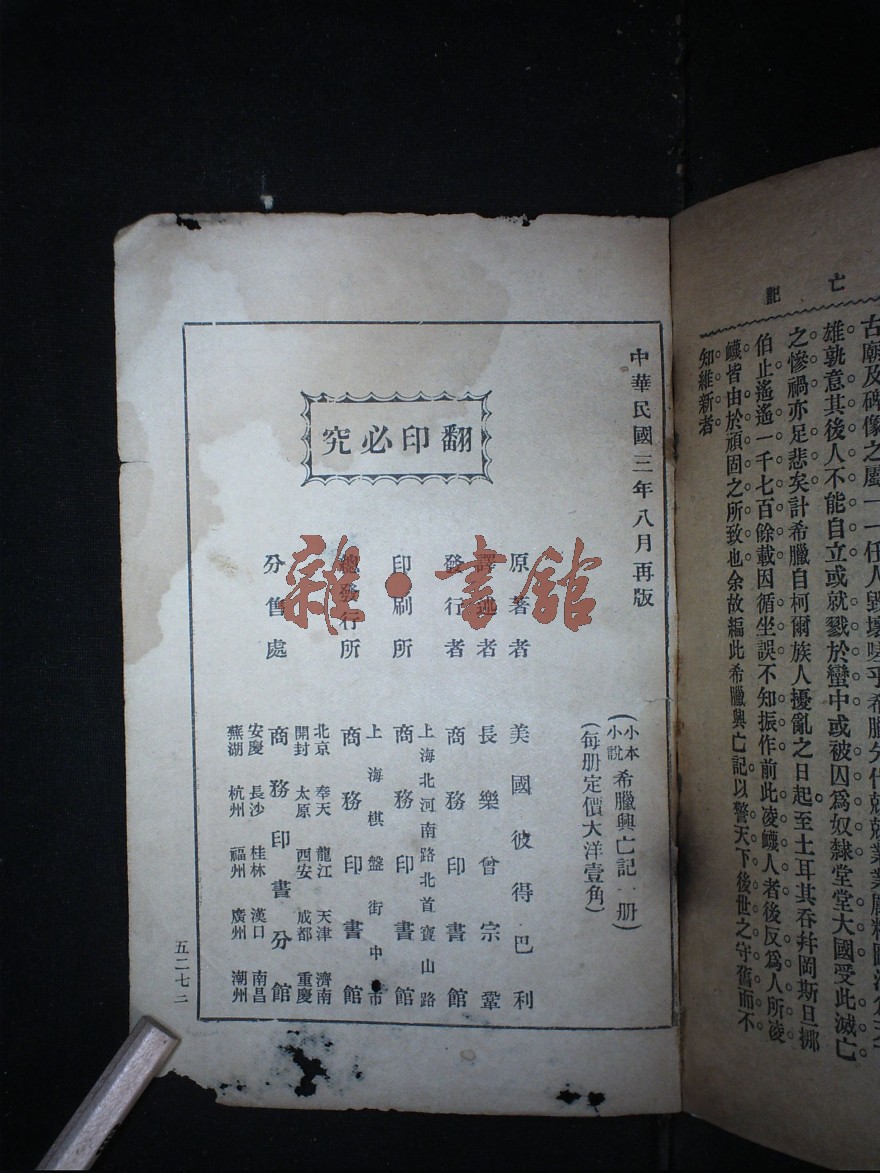 亡
記
古廟及碑像之屬一一任人毀壞嗟乎希臘先代兢兢業業
雄孰意其後人不能自立或就戮於蠻中或被囚爲奴隸堂堂大國受此滅亡
之慘禍亦足悲矣計希臘自柯爾族人擾亂之日起至土耳其吞幷岡斯旦挪
伯止遙遙一千七百餘載因循坐誤不知振作前此凌蠛人者後反爲人所凌
蠛皆由於頑固之所致也余故編此希臘興亡記以警天下後世之守舊而不
知維新者
中華民國三年八月再版
(小本小說希臘興亡記一册)
(每册定價大洋壹角)
翻印必究
原著者 美國彼得巴利
譯述者 長樂曾宗鞏
發行者 商務印書館
上海北河南路北首寶山路
印刷所 商務印書館
上海棋盤街中市
總發行所 商務印書館
北京 奉天 龍江 天津 濟南
開封 太原 西安 成都 重慶
分售處 商務印書分館
安慶 長沙 桂林 漢口 南昌
蕪湖 杭州 福州 廣州 潮州
五二七二
雜·書館